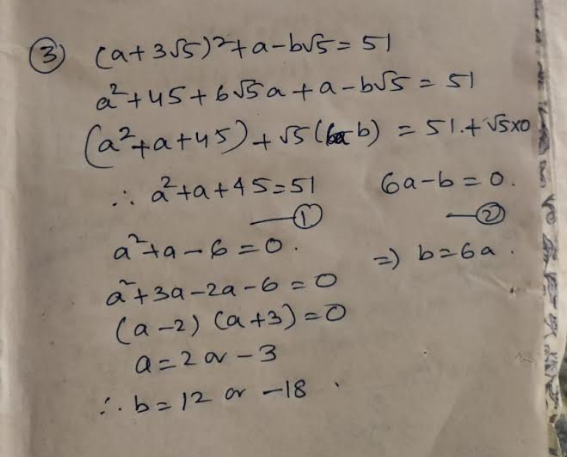 ③ (a+3√5)²+a-b√5=51
a²+45+6√5a+a-b√5=51
(a²+a+45)+√5(6a-b)=51+√5×0
∴ a²+a+45=51 6a-b=0.
—① —②
a²+a-6=0. ⇒ b=6a.
a²+3a-2a-6=0
(a-2)(a+3)=0
a=2 or -3
∴ b=12 or -18.